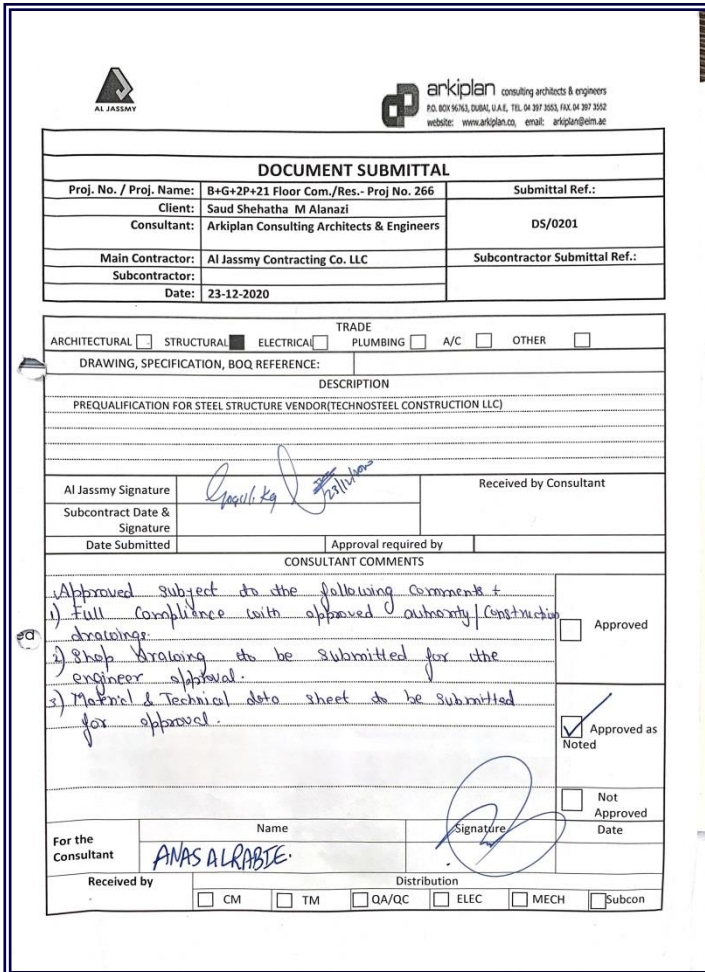 AL JASSMY
arkiplan consulting architects & engineers
P.O. BOX 96763, DUBAI, U.A.E, TEL. 04 397 3553, FAX. 04 397 3552
website: www.arkiplan.co, email: arkiplan@eim.ae
DOCUMENT SUBMITTAL
Proj. No. / Proj. Name: B+G+2P+21 Floor Com./Res.- Proj No. 266 Submittal Ref.:
Client: Saud Shehatha M Alanazi
Consultant: Arkiplan Consulting Architects & Engineers DS/0201
Main Contractor: Al Jassmy Contracting Co. LLC Subcontractor Submittal Ref.:
Subcontractor:
Date: 23-12-2020
TRADE
ARCHITECTURAL STRUCTURAL ELECTRICAL PLUMBING A/C OTHER
DRAWING, SPECIFICATION, BOQ REFERENCE:
DESCRIPTION
PREQUALIFICATION FOR STEEL STRUCTURE VENDOR(TECHNOSTEEL CONSTRUCTION LLC)
Al Jassmy Signature 23/12/2020 Received by Consultant
Subcontract Date &
Signature
Date Submitted Approval required by
CONSULTANT COMMENTS
Approved subject to the following comments
1) Full Compliance with approved authority/Construction
drawings.
2) Shop drawing to be submitted for the
engineer approval.
3) Material & Technical data sheet to be submitted
for approval.
Approved
Approved as
Noted
Not
Approved
For the
Consultant
Name Signature Date
ANAS ALRABIE.
Received by Distribution
CM TM QA/QC ELEC MECH Subcon